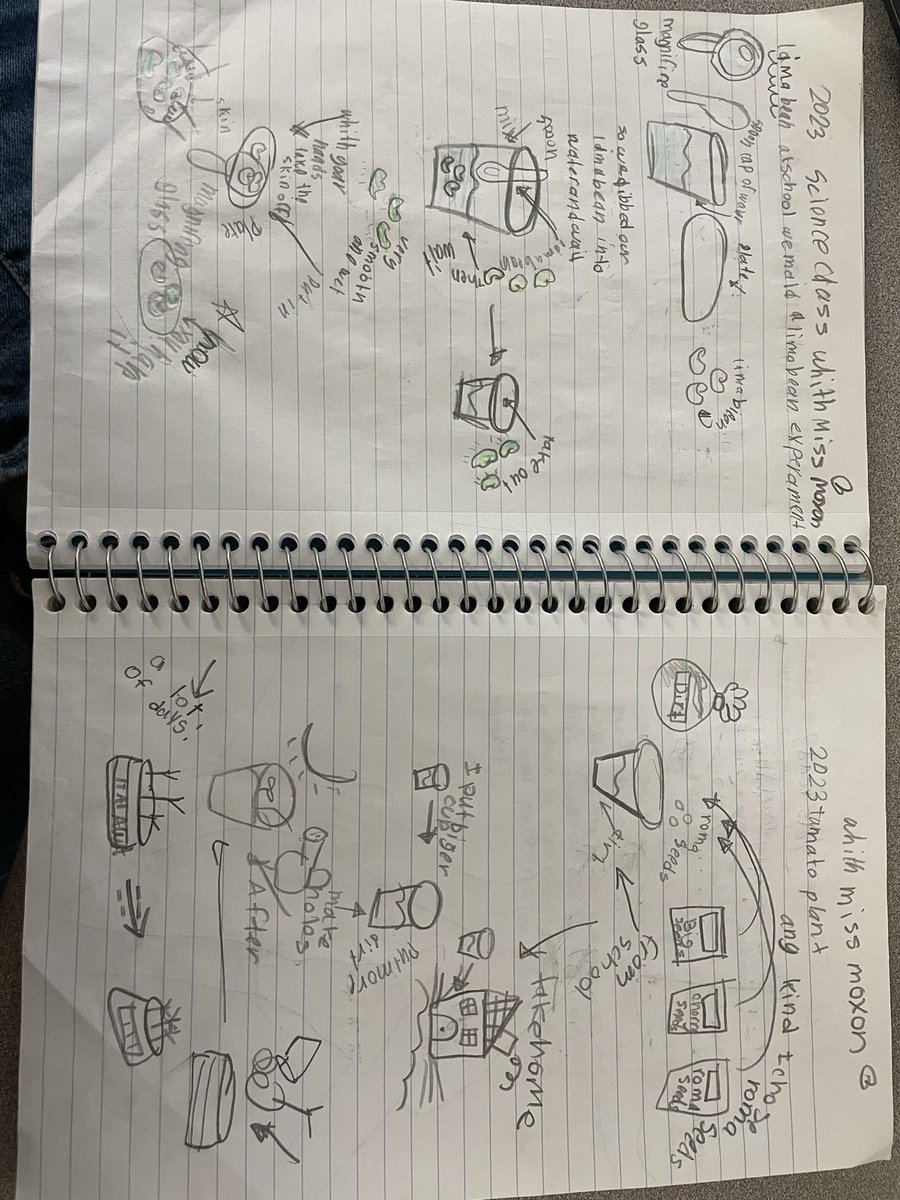 2023 science class whith Miss Moxon
lima bean atschool we maid a limabean experament
magnifine
glass
cup of water
plate
lima bean
so we dibbed our
limabean in-to
water and wait
spoon
limabean
then
wait
take out
very
smooth
and wet
whith your
hands
take the
skin off
Put in
Plate
skin
magnifing
glass
now
you hafe
it
whith miss moxon
2023 tumato plant
any kind I chose
roma
seeds
Dirt
roma
seeds
Big
seeds
cherry
seeds
roma
seeds
dirt
from
school
take home
I put biger
cup
put more
dirt
make
holes
After
a
lot
of